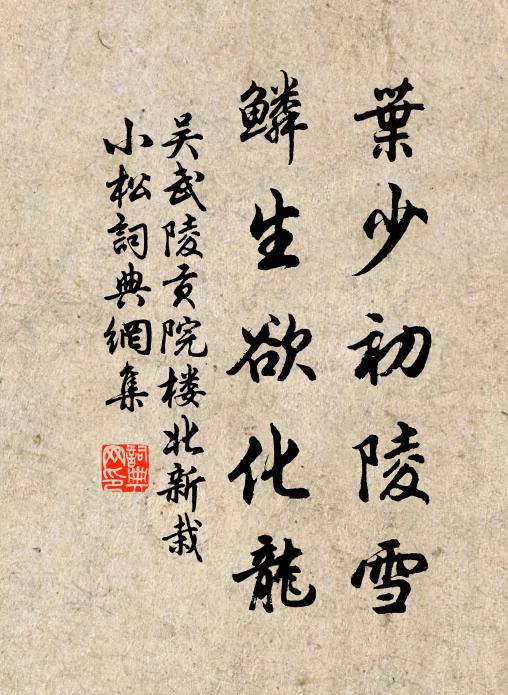 葉少初陵雪
鱗生欲化龍
吴武陵贡院楼北新栽
小松詞典網集
詞典网印